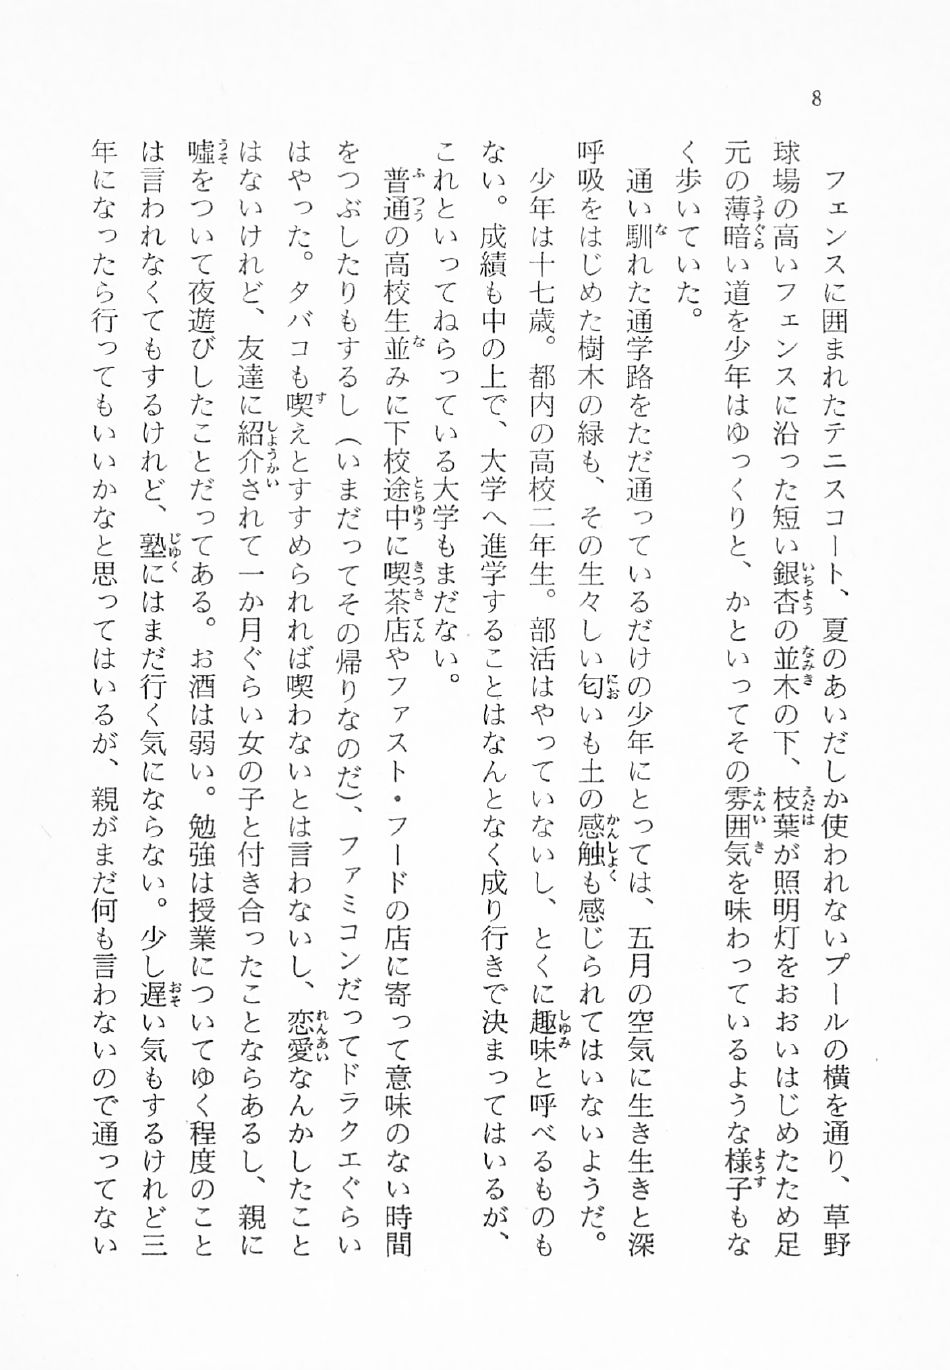 8
フェンスに囲まれたテニスコート、夏のあいだしか使われないプールの横を通り、草野
球場の高いフェンスに沿った短い銀杏の並木の下、枝葉が照明灯をおおいはじめたため足
元の薄暗い道を少年はゆっくりと、かといってその雰囲気を味わっているような様子もな
く歩いていた。
通い馴れた通学路をただ通っているだけの少年にとっては、五月の空気に生き生きと深
呼吸をはじめた樹木の緑も、その生々しい匂いも土の感触も感じられてはいないようだ。
少年は十七歳。都内の高校二年生。部活はやっていないし、とくに趣味と呼べるものも
ない。成績も中の上で、大学へ進学することはなんとなく成り行きで決まってはいるが、
これといってねらっている大学もまだない。
普通の高校生並みに下校途中に喫茶店やファスト・フードの店に寄って意味のない時間
をつぶしたりもするし（いまだってその帰りなのだ）、ファミコンだってドラクエぐらい
はやった。タバコも喫えとすすめられれば喫わないとは言わないし、恋愛なんかしたこと
はないけれど、友達に紹介されて一か月ぐらい女の子と付き合ったことならあるし、親に
嘘をついて夜遊びしたことだってある。お酒は弱い。勉強は授業についてゆく程度のこと
は言われなくてもするけれど、塾にはまだ行く気にならない。少し遅い気もするけれど三
年になったら行ってもいいかなと思ってはいるが、親がまだ何も言わないので通ってない